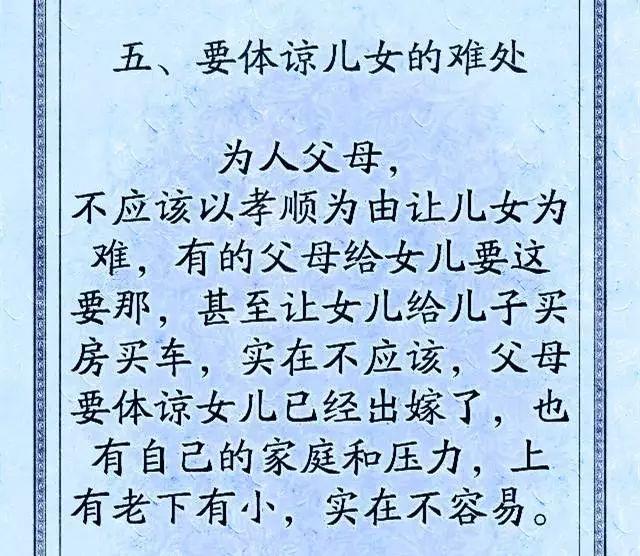 五、要体谅儿女的难处
为人父母，
不应该以孝顺为由让儿女为
难，有的父母给女儿要这
要那，甚至让女儿给儿子买
房买车，实在不应该，父母
要体谅女儿已经出嫁了，也
有自己的家庭和压力，上
有老下有小，实在不容易。